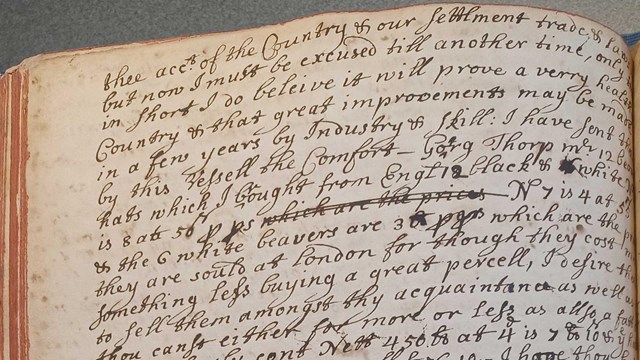 thee acc^t of the Country & our Settlment trade, &
but now I must be excused till another time, only
in short I do beleive it will prove a verry
Country & that great improvements may be
in a few years by Industry & Skill: I have sent
by this Vessell the Comfort - Thorp m^r 12
hats which I brought from Engl 12 black & 6 white
is 8 at 50 p ps which are the prices N 7 is 4 at
& the 6 white beavers are 3 p ps which are the
they are sould at London for though they cost
Something less buying a great percell, I desire
to sell them amongst thy acquaintance as well
thou canst either for more or less as allso a
Nett 450 at 4 is 7 10
I hope thou